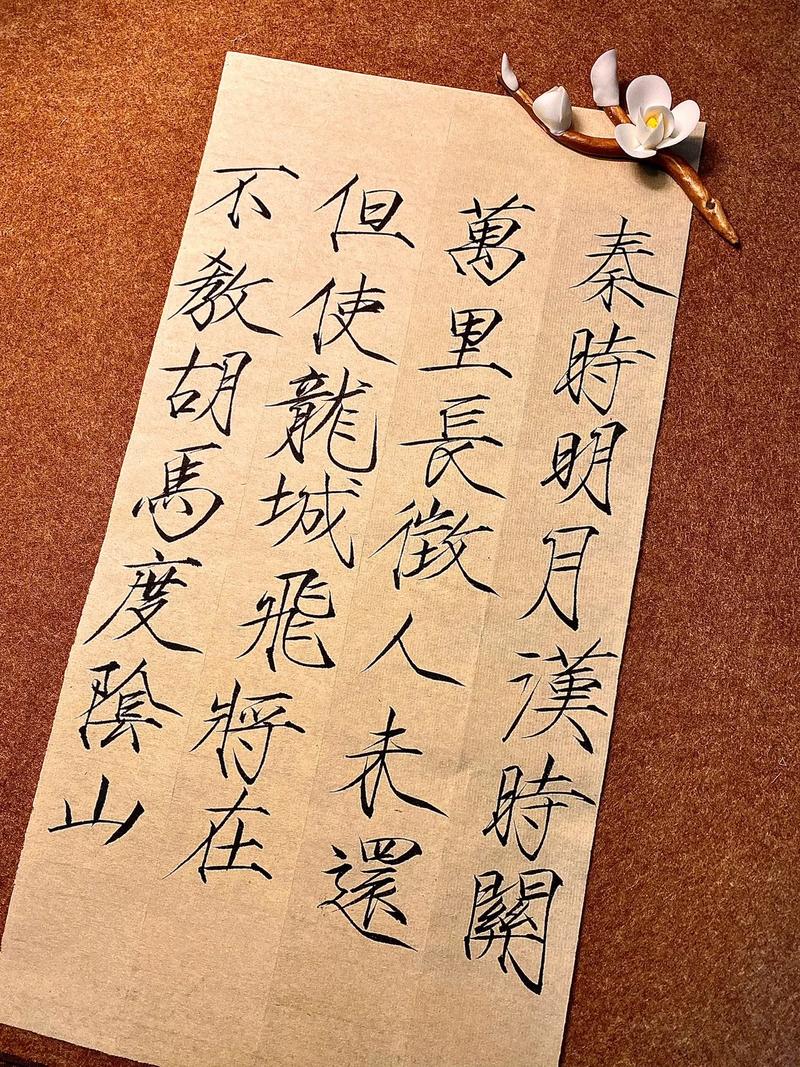 秦時明月漢時關
萬里長徵人未還
但使龍城飛將在
不教胡馬度陰山